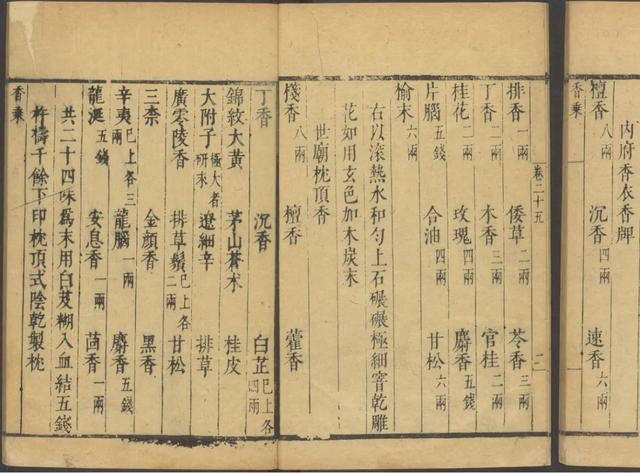 內府香衣香牌
檀香八兩 沉香四兩 速香六兩
香乘
排香一兩 倭草二兩 苓香三兩
丁香二兩 木香三兩 官桂二兩
桂花二兩 玫瑰四兩 麝香五錢
片腦五錢 合油四兩 甘松六兩
榆末六兩
右以滾熱水和勻上石碾碾極細窨乾雕
花如用玄色加木炭末
世廟枕頂香
棧香八兩 檀香 藿香
卷二十五
二
丁香 沉香 白芷已上各四兩
錦紋大黃 茅山蒼朮 桂皮
大附子極大者研末 遼細辛 排草
廣零陵香 排草鬚已上各二兩 甘松
三柰 金顏香 黑香
辛夷已上各三兩 龍腦一兩 麝香五錢
龍涎五錢 安息香一兩 茴香一兩
共二十四味為末用白芨糊入血結五錢
杵擣千餘下印枕頂式陰乾製枕
香乘